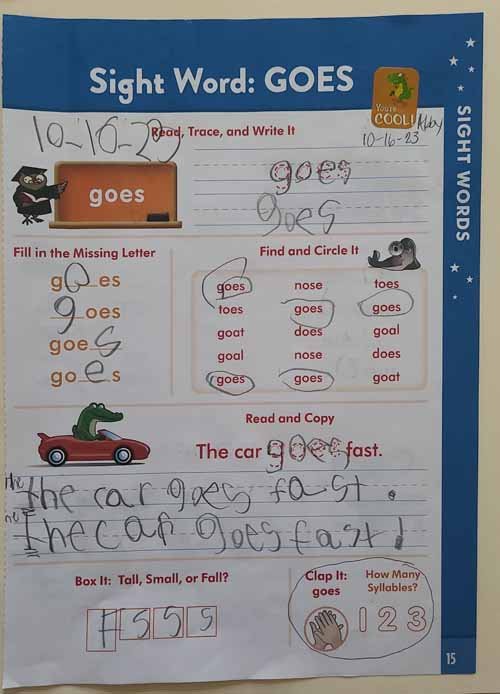 Sight Word: GOES
You're
COOL!
Abby
10-16-23
10-16-23
Read, Trace, and Write It
goes
goes
goes
SIGHT WORDS
Fill in the Missing Letter
goes
goes
goes
goes
Find and Circle It
goes nose toes
toes goes goes
goat does goal
goal nose does
goes goes goat
Read and Copy
The car goes fast.
the car goes fast.
The car goes fast!
Box It: Tall, Small, or Fall?
F S S S
Clap It:
goes
How Many
Syllables?
1 2 3
15